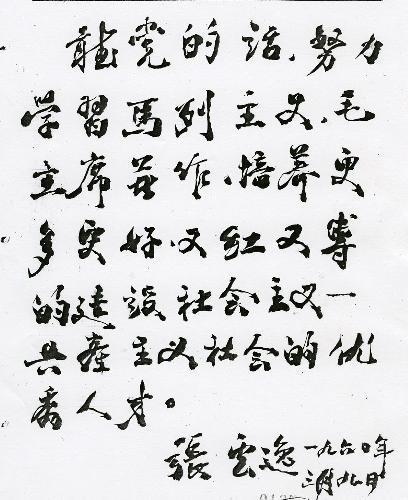 聽党的话、努力
学習馬列主义、毛
主席著作、培养更
多更好又红又専
的建設社会主义—
共産主义社会的优
秀人才。
張雲逸 一九六〇年
三月九日